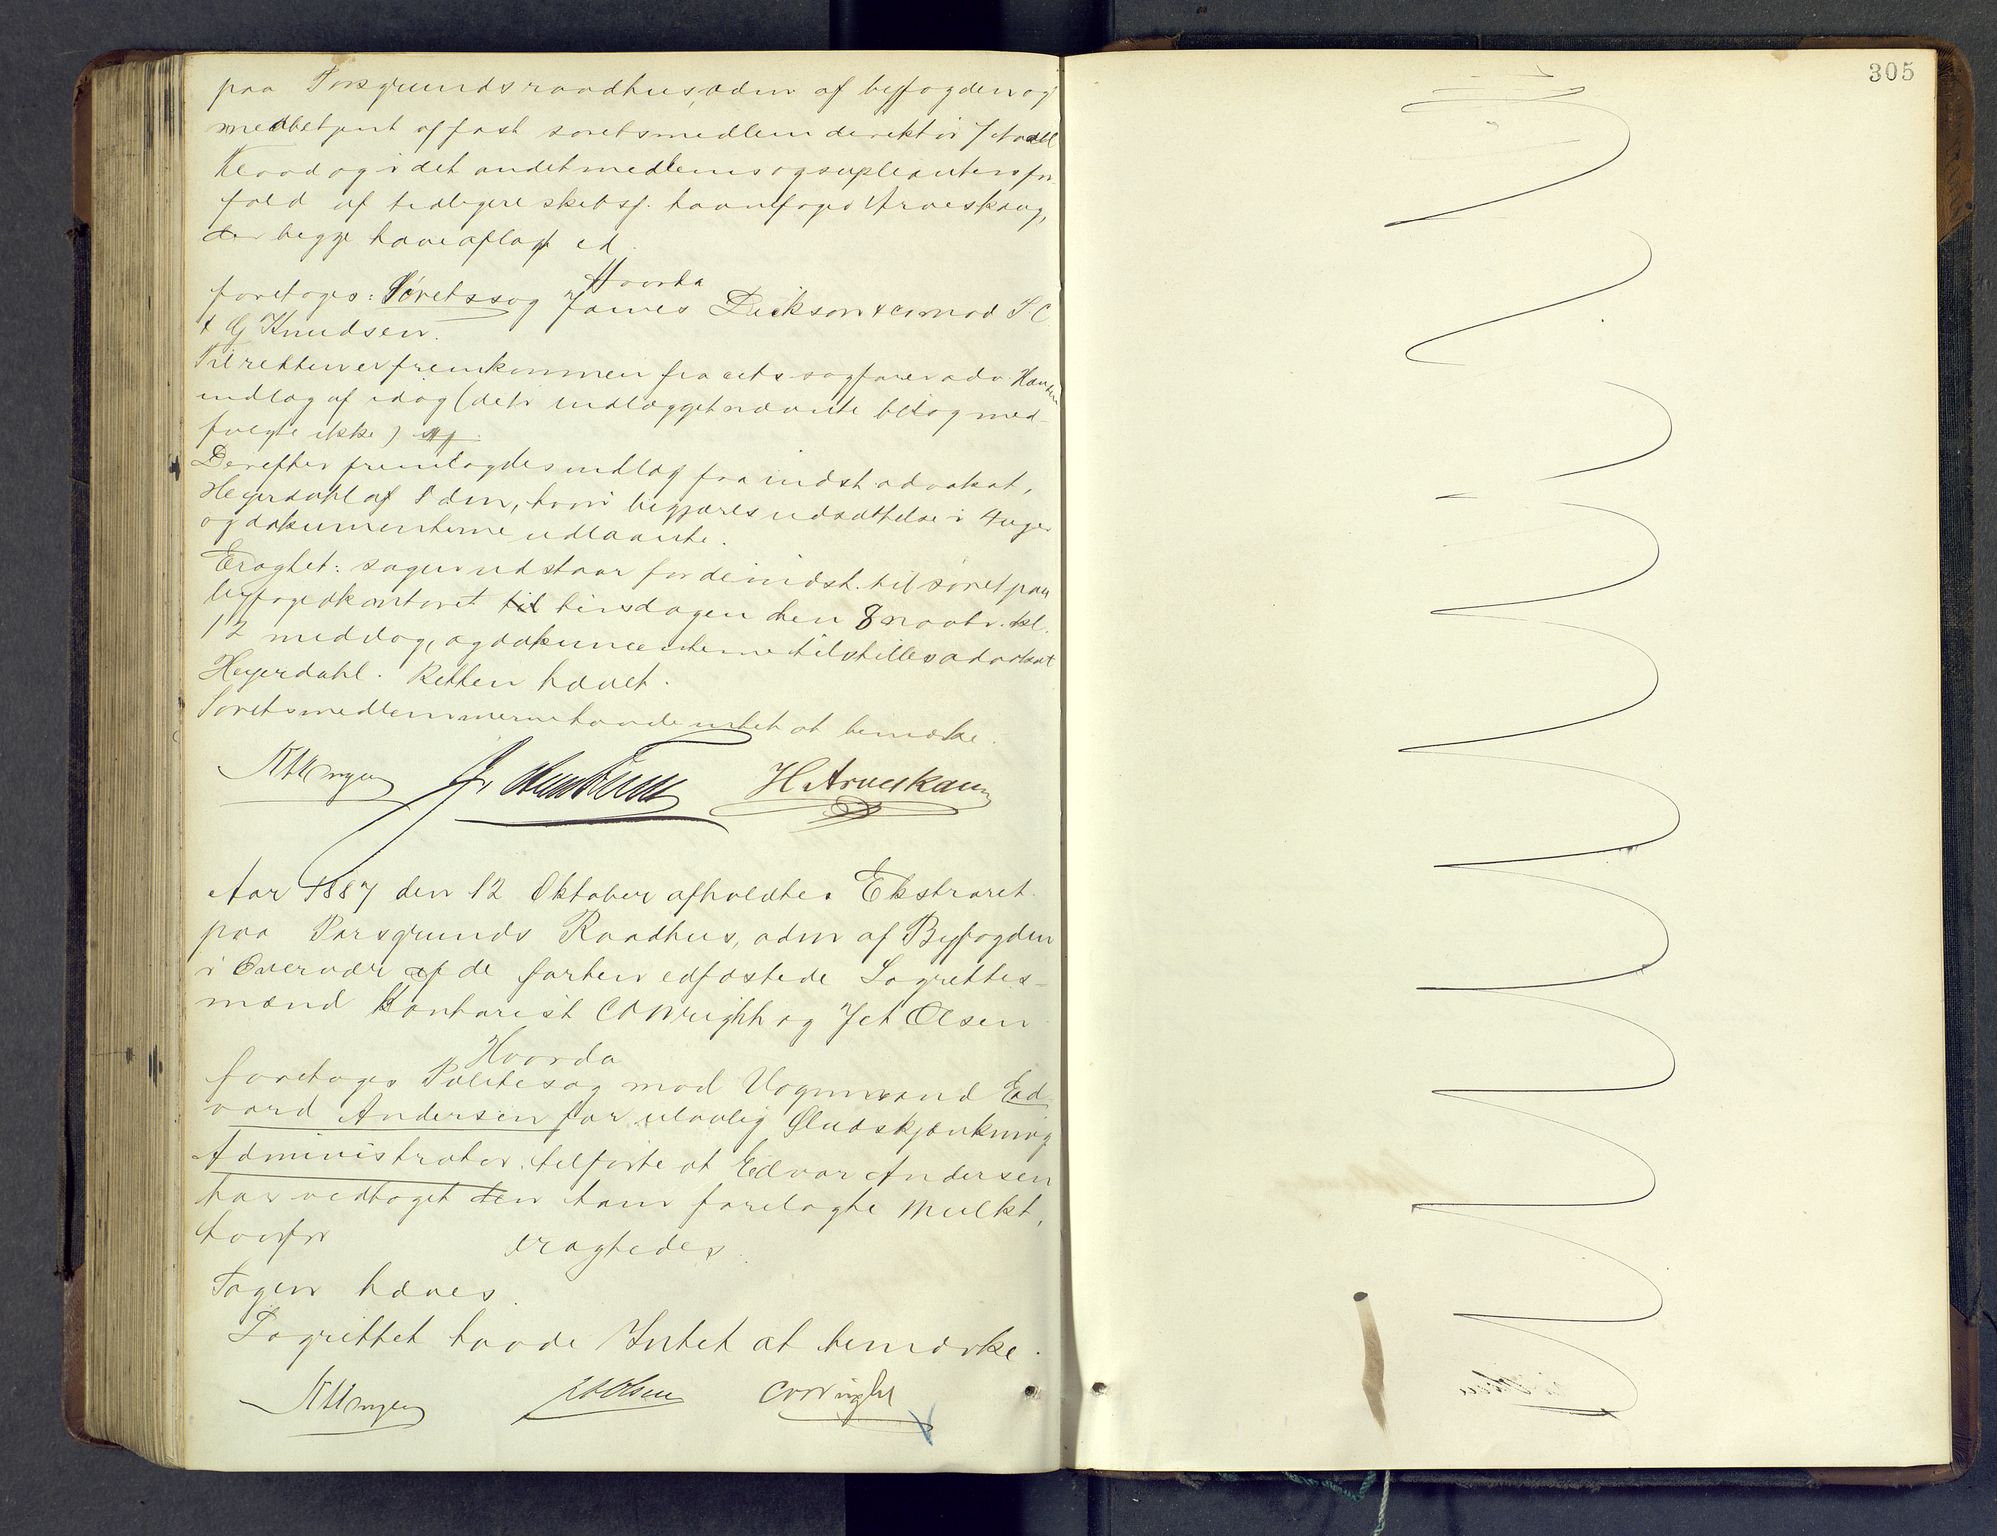 paa Porsgrunds raadhus, adm af byfogden og
medbetjent af fast søretsmedlem direktør
og i det andet medlems og supleanters for-
fald af tidligere skibsf. havnefoged Arveskaug,
der begge have aflagt ed.
Hvorda
foretoges: Søretssag James Dickson & co mod J C
& G Knudsen.
Til retten er fremkommen fra cits sagfører adv. Hansen
indlæg af idag (det i indlægget nævnte bilag med-
fulgte ikke)
Derefter fremlagdes indlæg fra indst advokat,
Heyerdahl af 8 dm, hvori begjæres udsættelse i 4 uger
og dokumenterne udlaante.
Eragtet: sagen udstaar for de indst. til søret paa
byfogedkontoret til tirsdagen den 8 novbr. kl.
12 middag, og dokumenterne tilstilles advokat
Heyerdahl. Retten hævet.
Søretsmedlemmerne havde intet at bemærke.
H Arveskaug
Aar 1887 den 12 Oktober afholdtes Ekstraret
paa Porsgrunds Raadhus, adm af Byfogden
i Overvær af de forhen edfæstede Lagrettes-
mænd Kontorist C O Wright og Olsen
Hvorda
foretoges Politisag mod Vognmand Ed-
vard Andersen for ulovlig Øludskjænkning
Administrator tilførte at Edvar Andersen
har vedtaget den ham forelagte Mulkt,
hvorfor eragtedes
Sagen hæves.
Lagrettet havde Intet at bemærke.
Olsen C O Wright
305